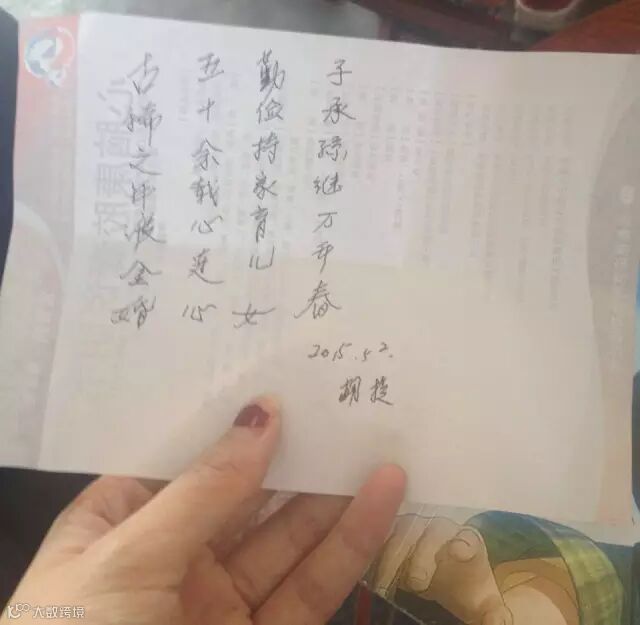 古稀之年渡金婚
五十余载心连心
勤俭持家育儿女
子承孙继万年春
2015.5.2.
胡
大数跨境